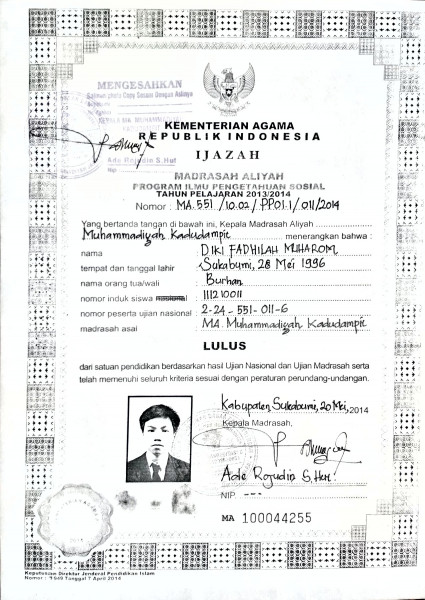 MENGESAHKAN
Ade Rojudin S.Hut
KEMENTERIAN AGAMA
REPUBLIK INDONESIA
IJAZAH
MADRASAH ALIYAH
PROGRAM ILMU PENGETAHUAN SOSIAL
TAHUN PELAJARAN 2013/2014
Nomor : MA.551 /10.02/ PP.01.1 /011/2014
Yang bertanda tangan di bawah ini, Kepala Madrasah Aliyah
Muhammadiyah Kadudampit menerangkan bahwa :
nama : DIKI FADHILAH MUHAROM
tempat dan tanggal lahir : Sukabumi, 28 Mei 1996
nama orang tua/wali : Burhan
nomor induk siswa nasional : 111210011
nomor peserta ujian nasional : 2-24-551-011-6
madrasah asal : MA. Muhammadiyah Kadudampit
LULUS
dari satuan pendidikan berdasarkan hasil Ujian Nasional dan Ujian Madrasah serta
telah memenuhi seluruh kriteria sesuai dengan peraturan perundang-undangan.
Kabupaten Sukabumi, 20 Mei, 2014
Kepala Madrasah,
Ade Rojudin S.Hut.
NIP ---
MA 100044255
Keputusan Direktur Jenderal Pendidikan Islam
Nomor : 1949 Tanggal 7 April 2014